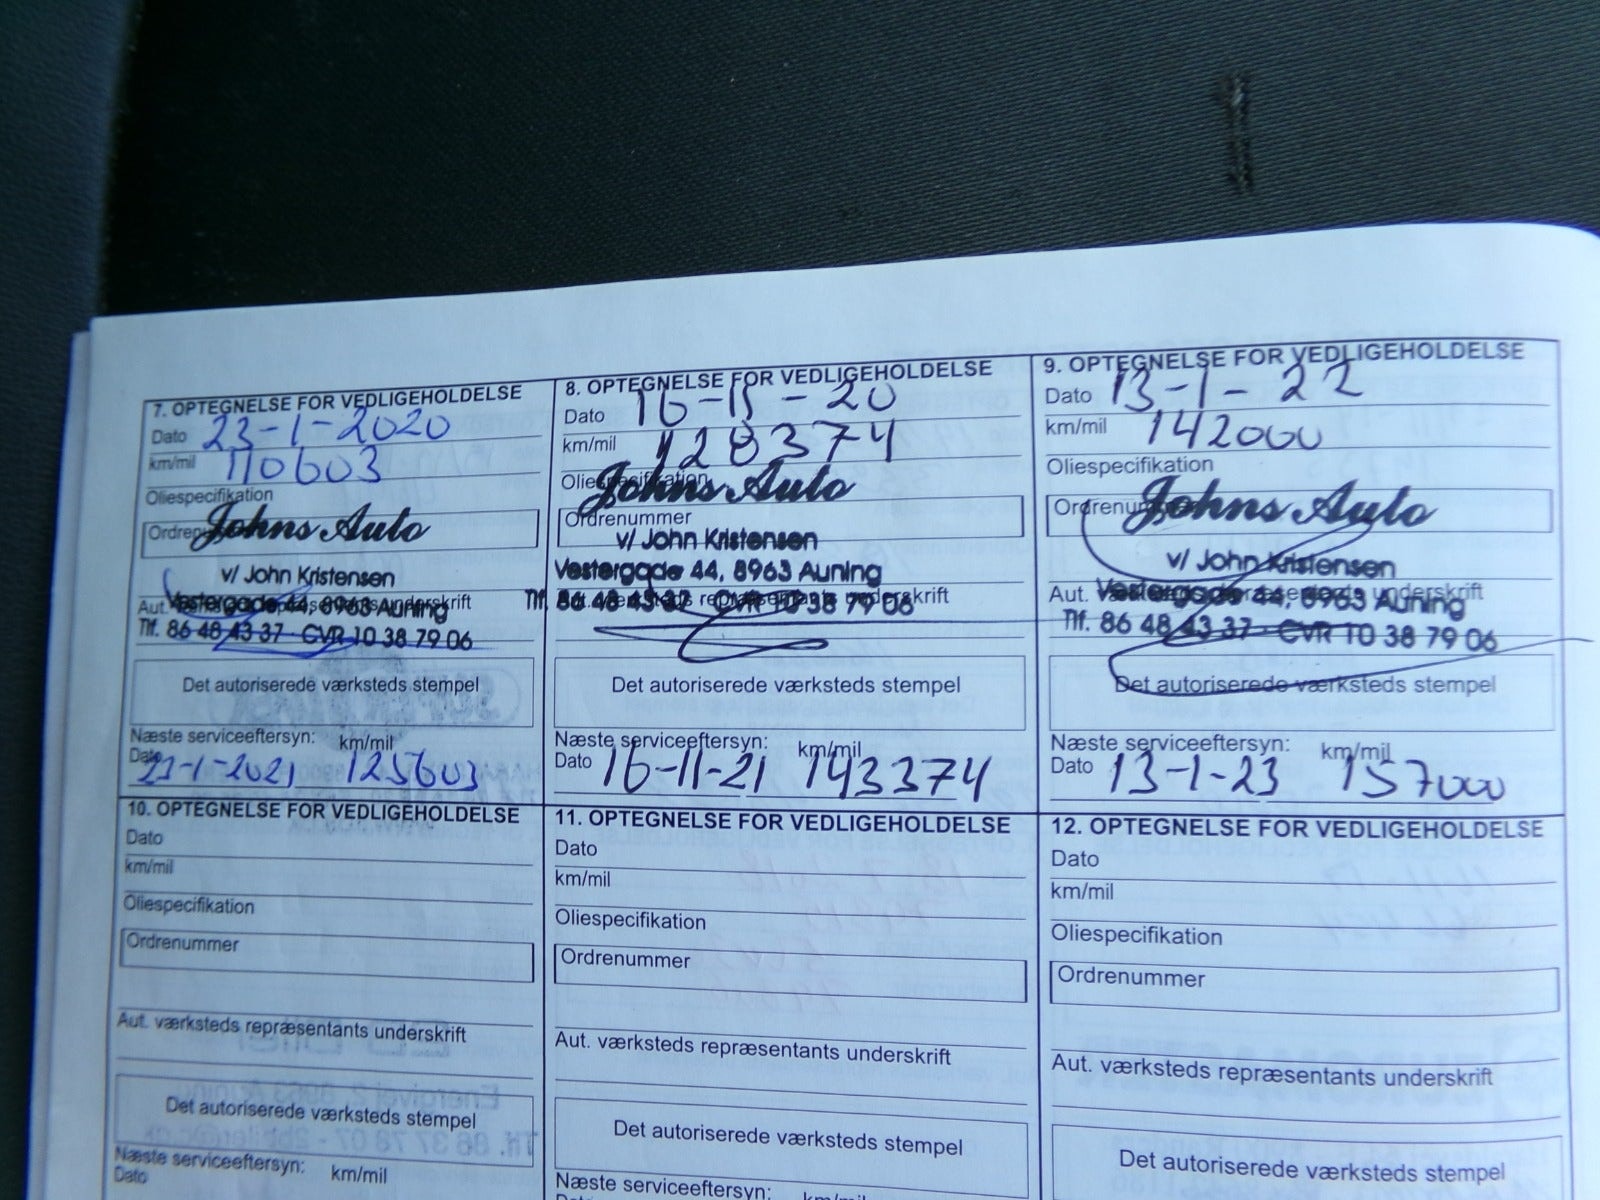 7. OPTEGNELSE FOR VEDLIGEHOLDELSE
Dato 23-1-2020
km/mil 110603
Oliespecifikation
Johns Auto
v/ John Kristensen
Aut. underskrift
Vestergade 44, 8963 Auning
Tlf. 86 48 43 37 · CVR 10 38 79 06
Det autoriserede værksteds stempel
Næste serviceeftersyn: km/mil
Dato 23-1-2021 125603
8. OPTEGNELSE FOR VEDLIGEHOLDELSE
Dato 16-11-20
km/mil 128374
Oliespecifikation
Johns Auto
Ordrenummer
v/ John Kristensen
Vestergade 44, 8963 Auning
Tlf. 86 48 43 37 CVR 10 38 79 06
underskrift
Det autoriserede værksteds stempel
Næste serviceeftersyn: km/mil
Dato 16-11-21 143374
9. OPTEGNELSE FOR VEDLIGEHOLDELSE
Dato 13-1-22
km/mil 142000
Oliespecifikation
Ordrenummer
Johns Auto
v/ John Kristensen
Aut. underskrift
Vestergade 44, 8963 Auning
Tlf. 86 48 43 37 · CVR 10 38 79 06
Det autoriserede værksteds stempel
Næste serviceeftersyn: km/mil
Dato 13-1-23 157000
10. OPTEGNELSE FOR VEDLIGEHOLDELSE
Dato
km/mil
Oliespecifikation
Ordrenummer
Aut. værksteds repræsentants underskrift
Det autoriserede værksteds stempel
Næste serviceeftersyn: km/mil
Dato
11. OPTEGNELSE FOR VEDLIGEHOLDELSE
Dato
km/mil
Oliespecifikation
Ordrenummer
Aut. værksteds repræsentants underskrift
Det autoriserede værksteds stempel
Næste serviceeftersyn: km/mil
12. OPTEGNELSE FOR VEDLIGEHOLDELSE
Dato
km/mil
Oliespecifikation
Ordrenummer
Aut. værksteds repræsentants underskrift
Det autoriserede værksteds stempel